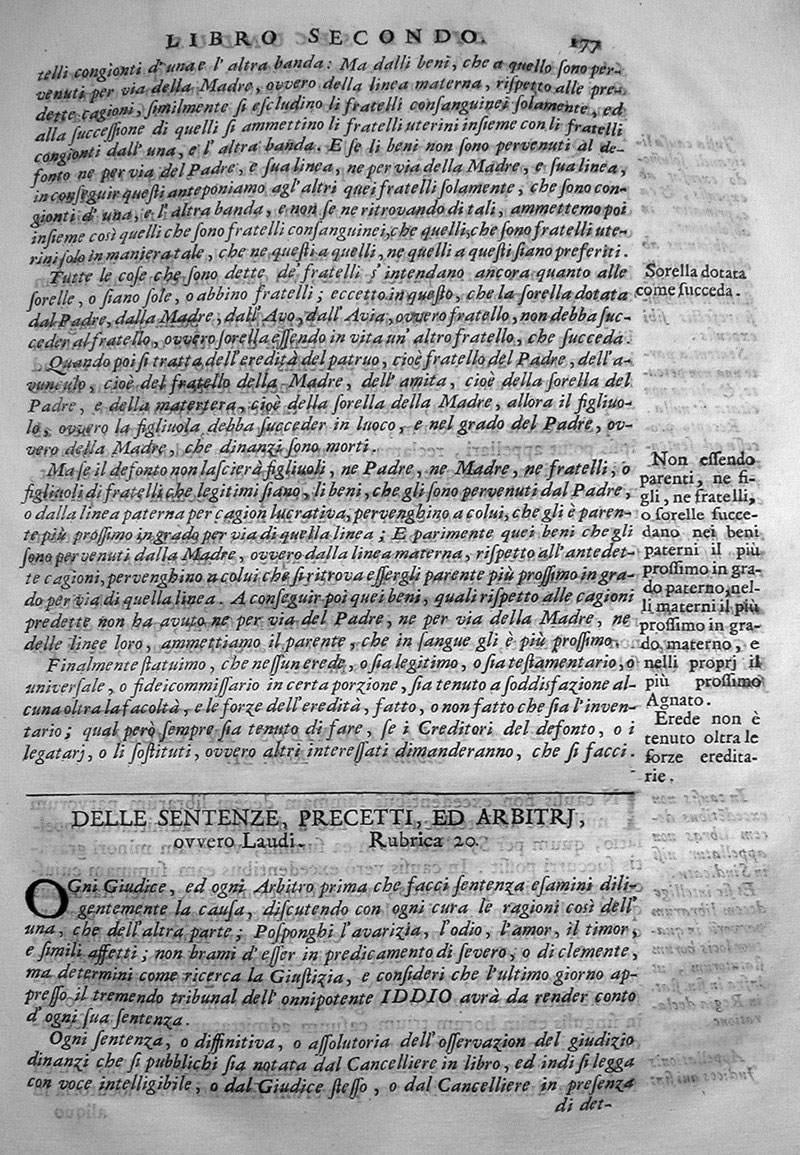 LIBRO SECONDO. 177
telli congionti d'una e l'altra banda: Ma dalli beni, che a quello ſono per-
venuti per via della Madre, ovvero della linea materna, riſpetto alle pre-
dette cagioni, ſimilmente ſi eſcludino li fratelli conſanguinei ſolamente, ed
alla ſucceſſione di quelli ſi ammettino li fratelli uterini inſieme con li fratelli
congionti dall'una, e l'altra banda. E ſe li beni non ſono pervenuti al de-
fonto ne per via del Padre, e ſua linea, ne per via della Madre, e ſua linea,
in conſeguir queſti anteponiamo agl'altri quei fratelli ſolamente, che ſono con-
gionti d'una, e l'altra banda, e non ſe ne ritrovando di tali, ammettemo poi
inſieme così quelli che ſono fratelli conſanguinei, che quelli, che ſono fratelli ute-
rini ſolo in maniera tale, che ne queſti a quelli, ne quelli a queſti ſiano preferiti.
Tutte le coſe che ſono dette, de' fratelli s'intendano ancora quanto alle
ſorelle, o ſiano ſole, o abbino fratelli; eccetto in queſto, che la ſorella dotata
dal Padre, dalla Madre, dall'Avo, dall'Avia, ovvero fratello, non debba ſuc-
ceder al fratello, ovvero ſorella eſſendo in vita un'altro fratello, che ſucceda.
Sorella dotata
come ſucceda.
Quando poi ſi tratta dell'eredità del patruo, cioè fratello del Padre, dell'a-
vunculo, cioè del fratello della Madre, dell'amita, cioè della ſorella del
Padre, e della matertera, cioè della ſorella della Madre, allora il figliuo-
lo, ovvero la figliuola debba ſucceder in luoco, e nel grado del Padre, ov-
vero della Madre, che dinanzi ſono morti.
Ma ſe il defonto non laſcierà figliuoli, ne Padre, ne Madre, ne fratelli, o
figliuoli di fratelli che legitimi ſiano, li beni, che gli ſono pervenuti dal Padre,
o dalla linea paterna per cagion lucrativa, pervenghino a colui, che gli è paren-
te più proſſimo in grado per via di quella linea; E parimente quei beni che gli
ſono pervenuti dalla Madre, ovvero dalla linea materna, riſpetto all'antedet-
te cagioni, pervenghino a colui che ſi ritrova eſſergli parente più proſſimo in gra-
do per via di quella linea. A conſeguir poi quei beni, quali riſpetto alle cagioni
predette non ha avuto ne per via del Padre, ne per via della Madre, ne
delle linee loro, ammettiamo il parente, che in ſangue gli è più proſſimo.
Non eſſendo
parenti, ne fi-
gli, ne fratelli,
o ſorelle ſucce-
dano nei beni
paterni il più
proſſimo in gra-
do paterno, nel-
li materni il più
proſſimo in gra-
do, materno, e
nelli proprj il
più proſſimo
Agnato.
Finalmente ſtatuimo, che neſſun erede, o ſia legitimo, o ſia teſtamentario, o
univerſale, o fideicommiſſario in certa porzione, ſia tenuto a ſoddisfazione al-
cuna oltra la facoltà, e le forze dell'eredità, fatto, o non fatto che ſia l'inven-
tario; qual però ſempre ſia tenuto di fare, ſe i Creditori del defonto, o i
legatarj, o li ſoſtituti, ovvero altri intereſſati dimanderanno, che ſi facci.
Erede non è
tenuto oltra le
forze eredita-
rie.
DELLE SENTENZE, PRECETTI, ED ARBITRJ,
ovvero Laudi. Rubrica 20.
OGni Giudice, ed ogni Arbitro prima che facci ſentenza eſamini dili-
gentemente la cauſa, diſcutendo con ogni cura le ragioni così dell'
una, che dell'altra parte; Poſponghi l'avarizia, l'odio, l'amor, il timor,
e ſimili affetti; non brami d'eſſer in predicamento di ſevero, o di clemente,
ma determini come ricerca la Giuſtizia, e conſideri che l'ultimo giorno ap-
preſſo il tremendo tribunal dell'onnipotente IDDIO avrà da render conto
d'ogni ſua ſentenza.
Ogni ſentenza, o diffinitiva, o aſſolutoria dell'oſſervazion del giudizio
dinanzi che ſi pubblichi ſia notata dal Cancelliere in libro, ed indi ſi legga
con voce intelligibile, o dal Giudice ſteſſo, o dal Cancelliere in preſenza
di det-